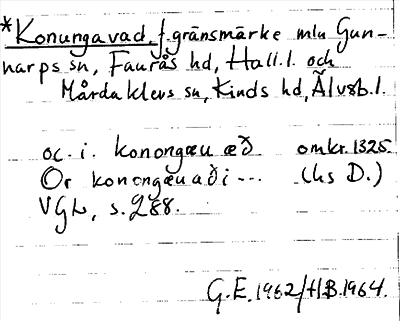 *Konungavad, f. gränsmärke mln Gun-
narps sn, Faurås hd, Hall. l. och
Mårdaklevs sn, Kinds hd, Älvsb. l.
oc. i. konongæu æð omkr. 1325
Or konongæuaði --- (hs D.)
VGL, s. 288.
G.E. 1962/H.B. 1964.